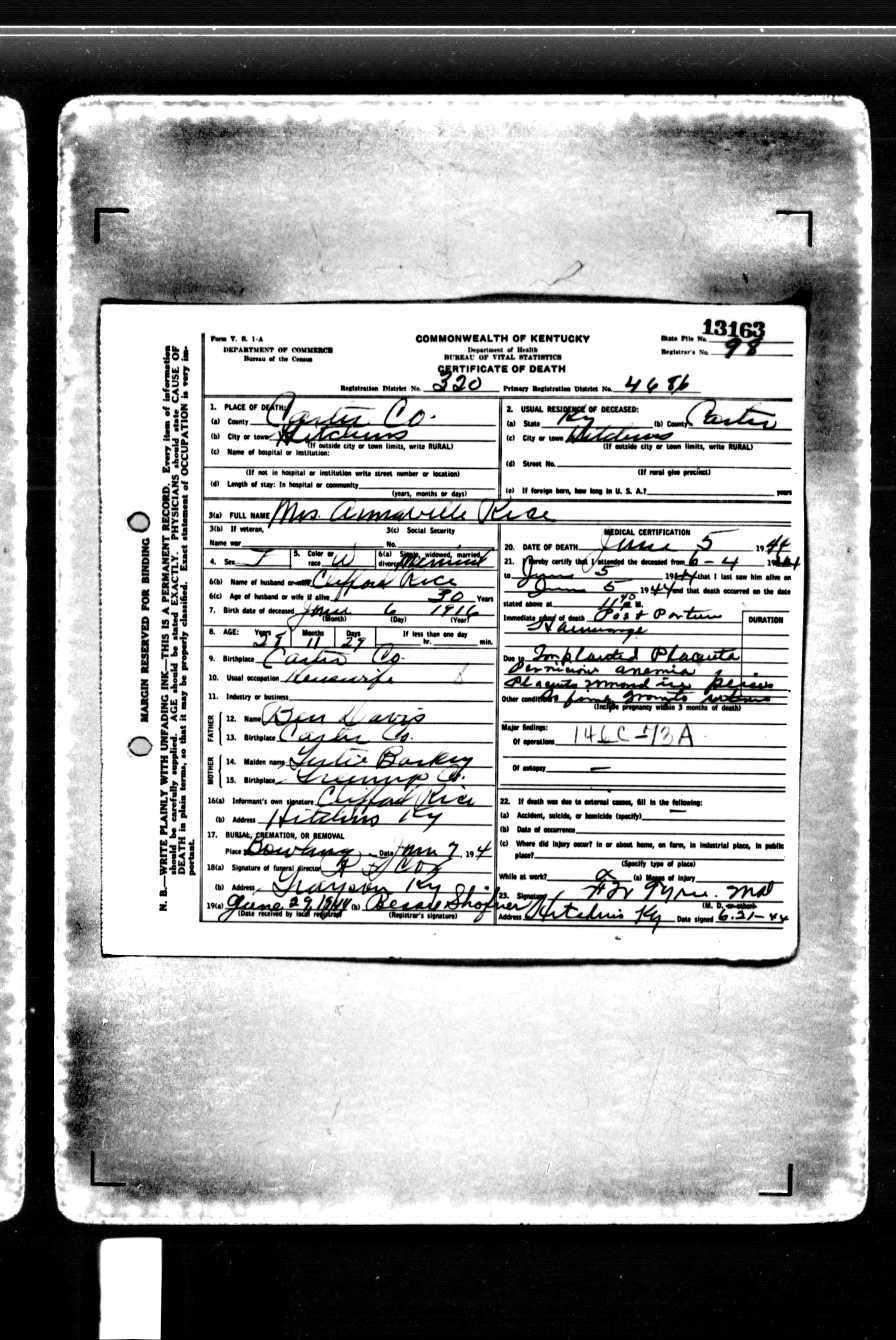 13163
Form V. S. 1-A
DEPARTMENT OF COMMERCE
Bureau of the Census
COMMONWEALTH OF KENTUCKY
Department of Health
BUREAU OF VITAL STATISTICS
CERTIFICATE OF DEATH
State File No.
Registrar's No. 98
Registration District No. 320 Primary Registration District No. 4686
MARGIN RESERVED FOR BINDING
N. B.—WRITE PLAINLY WITH UNFADING INK—THIS IS A PERMANENT RECORD. Every item of information
should be carefully supplied. AGE should be stated EXACTLY. PHYSICIANS should state CAUSE OF
DEATH in plain terms, so that it may be properly classified. Exact statement of OCCUPATION is very im-
portant.
1. PLACE OF DEATH:
(a) County Carter Co.
(b) City or town Hitchins
(If outside city or town limits, write RURAL)
(c) Name of hospital or institution:
(If not in hospital or institution write street number or location)
(d) Length of stay: In hospital or community
(years, months or days)
2. USUAL RESIDENCE OF DECEASED:
(a) State Ky (b) County Carter
(c) City or town Hitchins
(If outside city or town limits, write RURAL)
(d) Street No.
(If rural give precinct)
(e) If foreign born, how long in U. S. A.? years
3(a) FULL NAME Mrs Rice
3(b) If veteran,
Name war
3(c) Social Security
No.
4. Sex F
5. Color or
race W
6(a) Single, widowed, married,
divorced
6(b) Name of husband or wife Clifford Rice
6(c) Age of husband or wife if alive 30 Years
7. Birth date of deceased June 6 1916
(Month) (Day) (Year)
8. AGE: Years Months Days If less than one day
11 29 hr. min.
9. Birthplace Carter Co.
10. Usual occupation
11. Industry or business
FATHER
12. Name Ben Davis
13. Birthplace Carter Co.
MOTHER
14. Maiden name
15. Birthplace Greenup Co.
16(a) Informant's own signature Clifford Rice
(b) Address Hitchins Ky
17. BURIAL, CREMATION, OR REMOVAL
Place Date 7 194
18(a) Signature of funeral director
(b) Address Grayson Ky
19(a) June 29, 1944 (b) Bessie Shofner
(Date received by local registrar) (Registrar's signature)
MEDICAL CERTIFICATION
20. DATE OF DEATH June 5 1944
21. I hereby certify that I attended the deceased from 6-4 1944
to June 5 1944 that I last saw him alive on
June 5 1944 and that death occurred on the date
stated above at 11 40 M.
Immediate cause of death Post Partum
DURATION
Due to Implanted Placenta
Pernicious anemia
Placenta
Other conditions
(Include pregnancy within 3 months of death)
Major findings:
Of operations 146C 73A
Of autopsy —
22. If death was due to external causes, fill in the following:
(a) Accident, suicide, or homicide (specify) —
(b) Date of occurrence
(c) Where did injury occur? in or about home, on farm, in industrial place, in public
place?
(Specify type of place)
While at work? (e) Means of injury
23. Signature MD
(M. D. or other)
Address Hitchins Ky Date signed 6-21-44